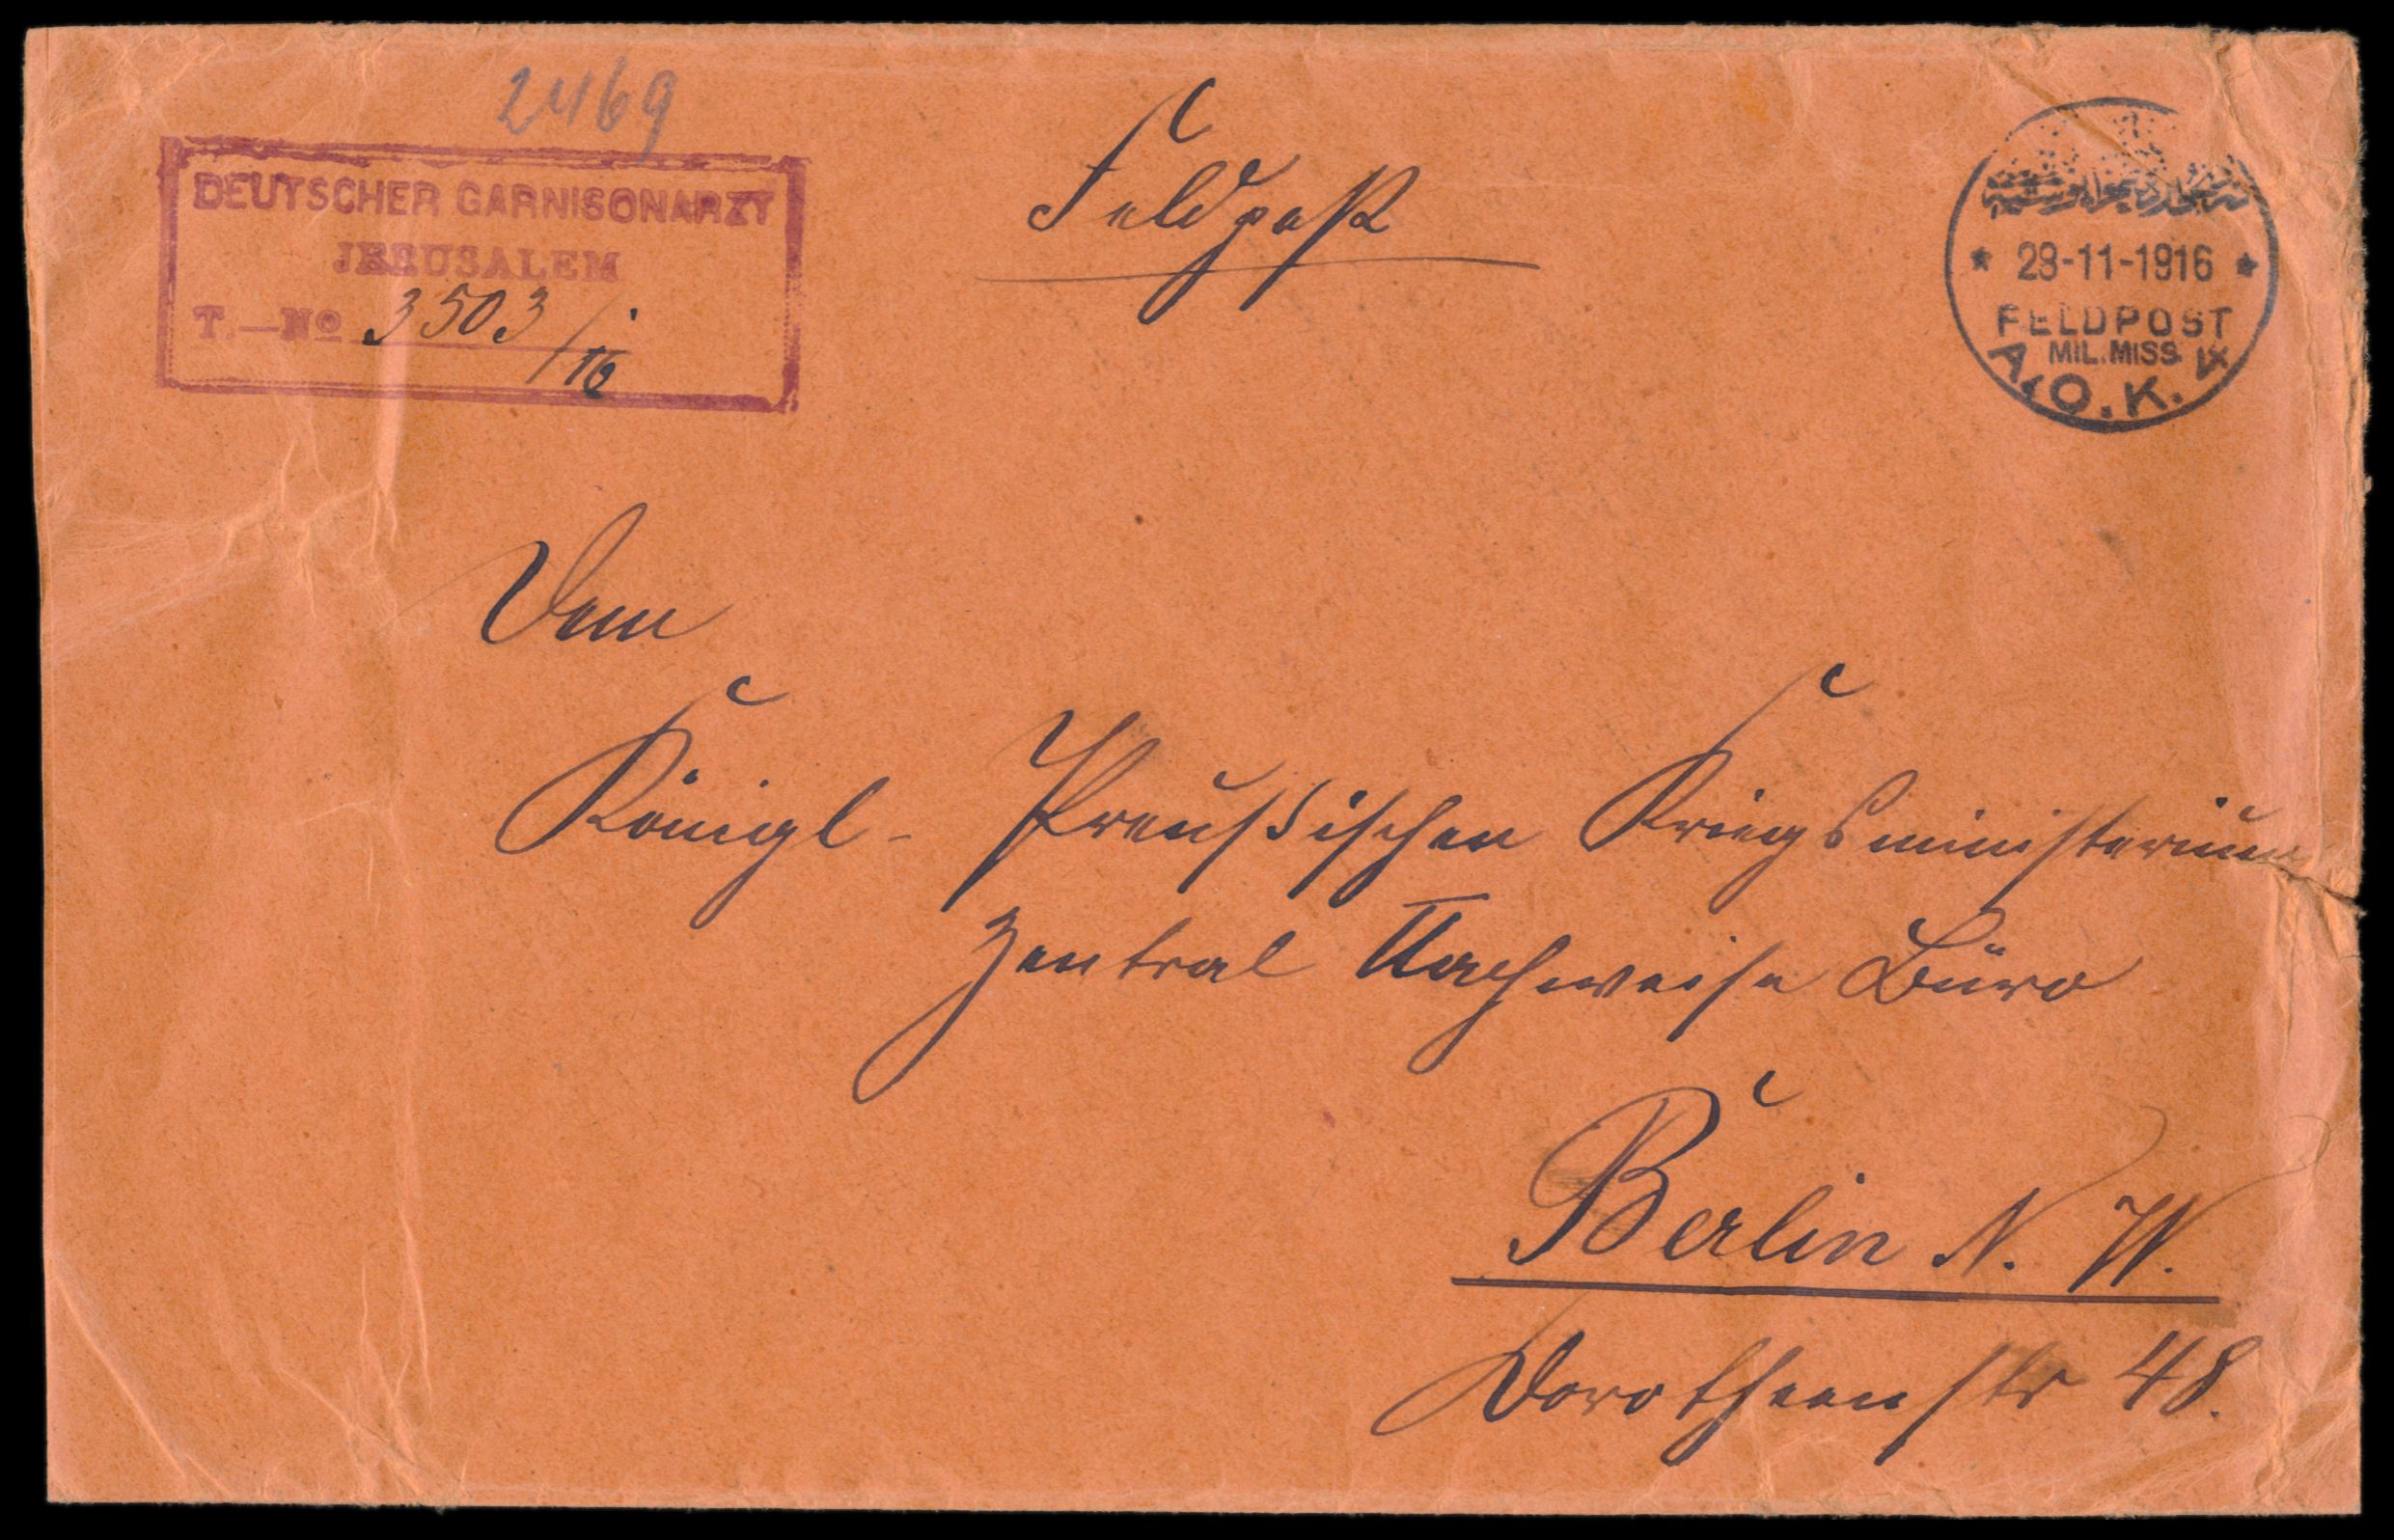 2469
DEUTSCHER GARNISONARZT
JERUSALEM
T.—No 3503/16
Feldpost
* 29-11-1916 *
FELDPOST
MIL.MISS.
A.O.K. 4
Dem
Königl- Preußischen Kriegsministerium
Zentral Nachweise Büro
Berlin N. W.
Dorotheenstr 48.